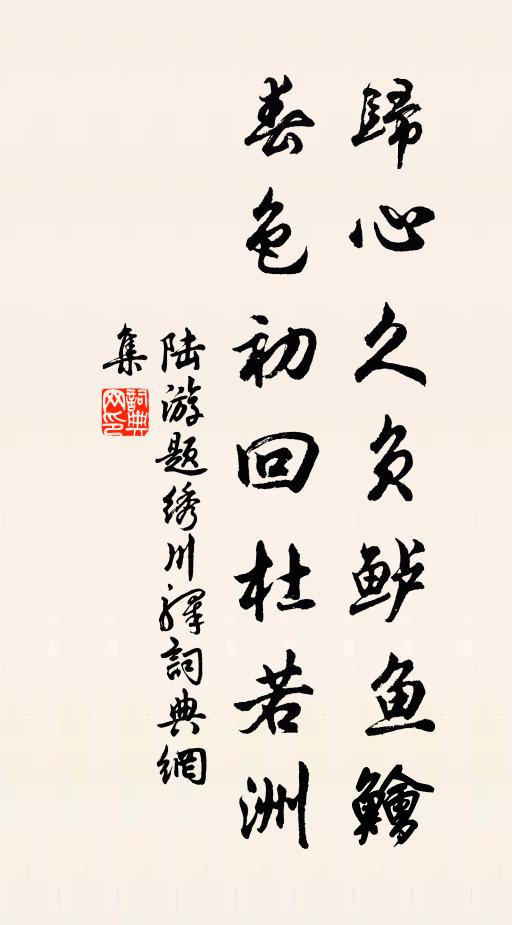 歸心久负鲈鱼鱠
春色初回杜若洲
陆游题绣川驛詞典網
集
詞典网印